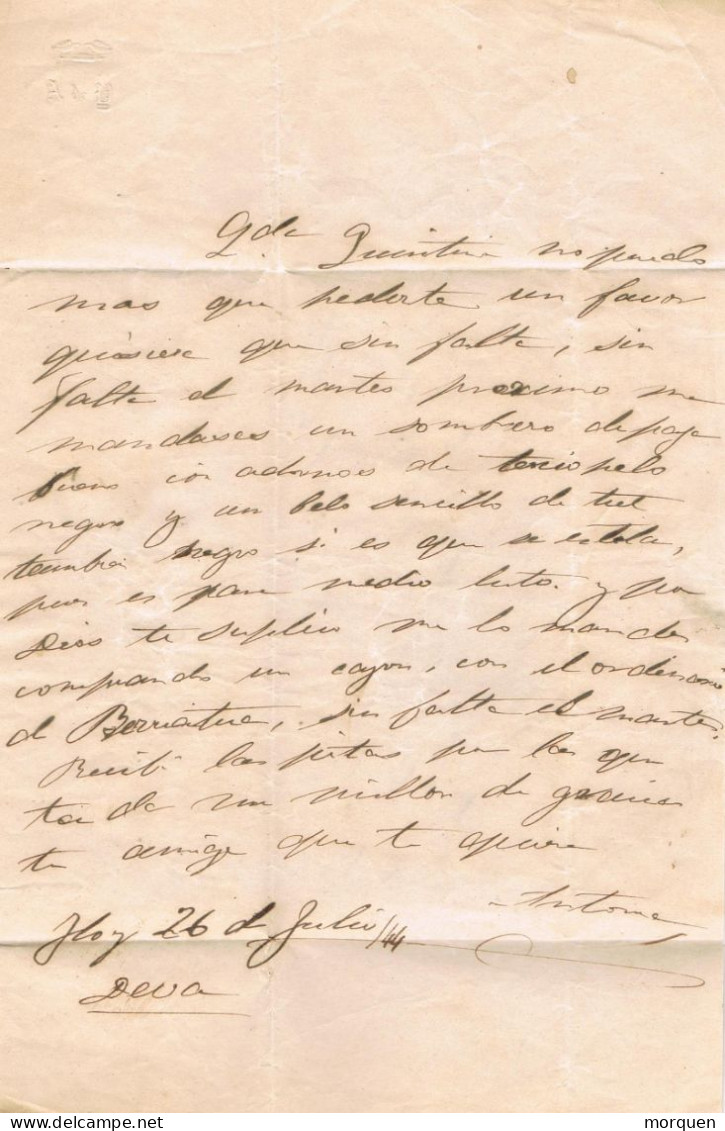 Qda Quintina no puedo
mas que pederte un favor
quisiera que sin falta, sin
falta el martes proximo me
mandases un sombrero de paja
bueno con adornos de terciopelo
negro y un belo sencillo de tul
tambien negro si es que se estila,
pues es para medio luto. y por
Dios te suplico me lo mandes
comprando un cajon, con el ordinario
de Berriatua, sin falta el martes.
Recibí las por las que
te da un millon de gracias
tu amiga que te quiere
Antonia
Hoy 26 de Julio/44
Deva
morquen